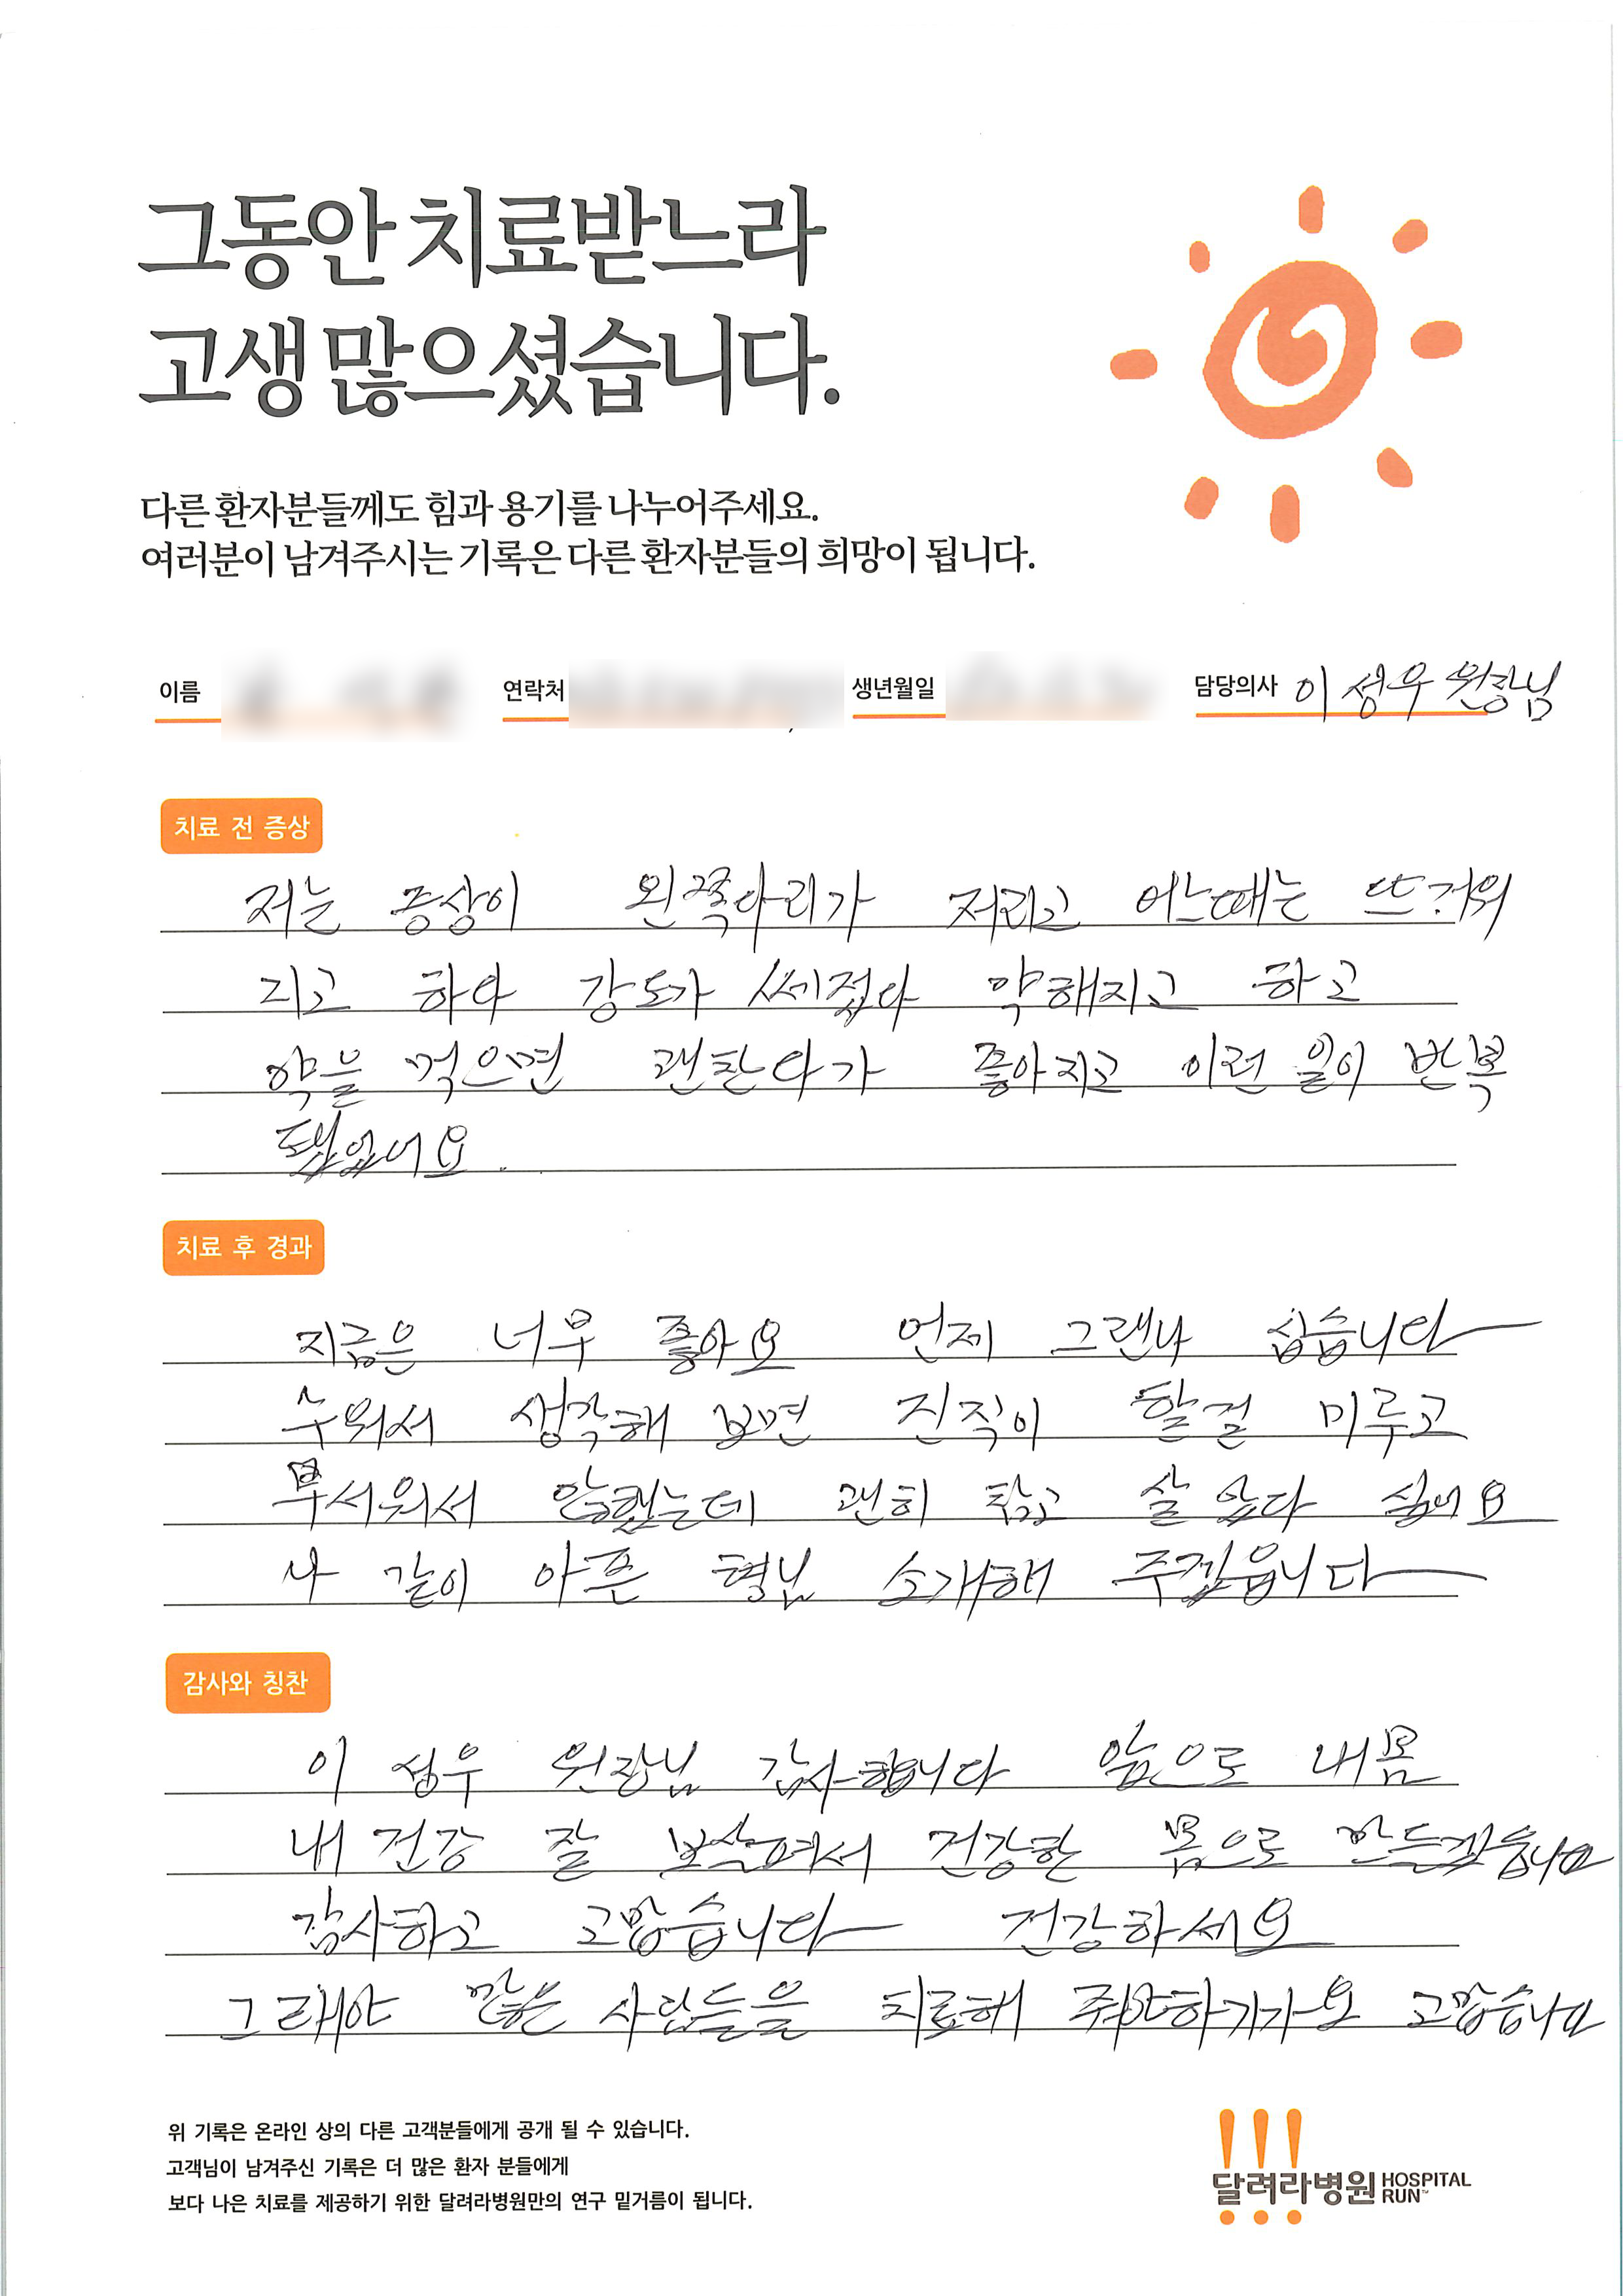 그동안 치료받느라
고생 많으셨습니다.
다른 환자분들께도 힘과 용기를 나누어주세요.
여러분이 남겨주시는 기록은 다른 환자분들의 희망이 됩니다.
이름 연락처 생년월일 담당의사 이성우 원장님
치료 전 증상
저는 증상이 왼쪽다리가 저리고 어느때는 뜨거워
지고 하다 강도가 쎄졌다 약해지고 하고
약을 먹으면 괜찬다가 좋아지고 이런 일이 반복
됐었어요.
치료 후 경과
지금은 너무 좋아요 언제 그랬나 십습니다
누워서 생각해 보면 진직이 할걸 미루고
무서워서 안했는데 괜히 참고 살았다 싶어요
나 같이 아픈 형님 소개해 주겠읍니다
감사와 칭찬
이성우 원장님 감사합니다 앞으로 내몸
내 건강 잘 보살펴서 건강한 몸으로 만들겠습니다
감사하고 고맙습니다 건강하세요
그래야 많은 사람들을 치료해 고맙습니다
위 기록은 온라인 상의 다른 고객분들에게 공개 될 수 있습니다.
고객님이 남겨주신 기록은 더 많은 환자 분들에게
보다 나은 치료를 제공하기 위한 달려라병원만의 연구 밑거름이 됩니다.
달려라병원 HOSPITAL
RUN™